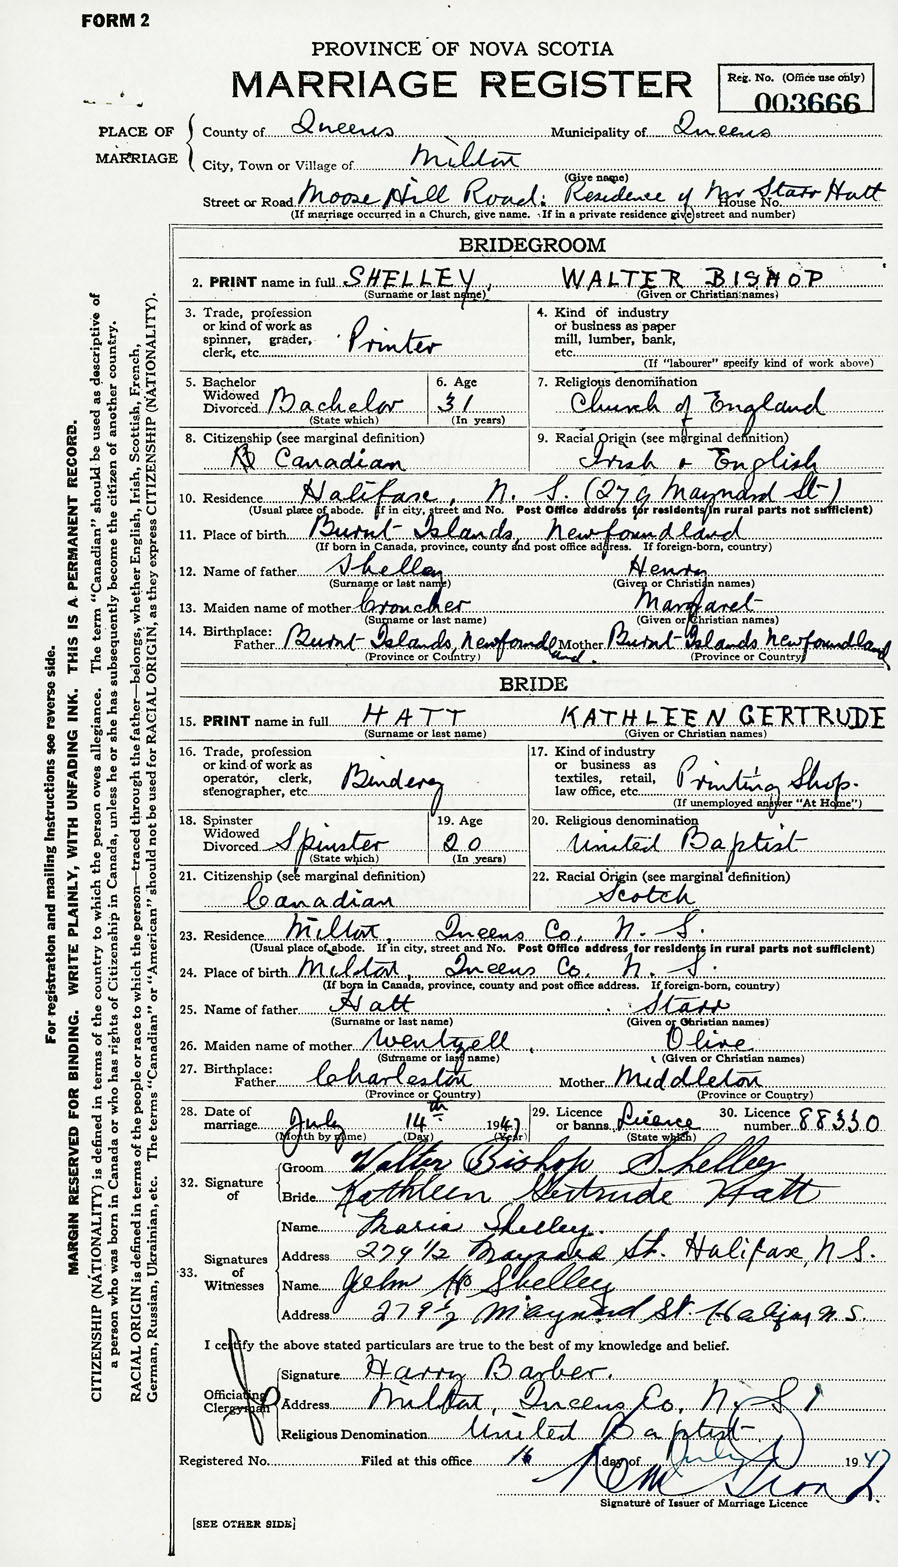 FORM 2
PROVINCE OF NOVA SCOTIA
MARRIAGE REGISTER
Reg. No. (Office use only)
003666
PLACE OF MARRIAGE
County of Queens Municipality of Queens
City, Town or Village of Milton
(Give name)
Street or Road Moose Hill Road: Residence of Mr Starr Hatt House No.
(If marriage occurred in a Church, give name. If in a private residence give street and number)
BRIDEGROOM
2. PRINT name in full SHELLEY, WALTER BISHOP
(Surname or last name) (Given or Christian names)
3. Trade, profession or kind of work as spinner, grader, clerk, etc. Printer
4. Kind of industry or business as paper mill, lumber, bank, etc.
(If "labourer" specify kind of work above)
5. Bachelor Widowed Divorced Bachelor
(State which)
6. Age 31
(In years)
7. Religious denomination
Church of England
8. Citizenship (see marginal definition)
Canadian
9. Racial Origin (see marginal definition)
Irish & English
10. Residence Halifax, N. S. (279 Maynard St.)
(Usual place of abode. If in city, street and No. Post Office address for residents in rural parts not sufficient)
11. Place of birth Burnt Islands, Newfoundland
(If born in Canada, province, county and post office address. If foreign-born, country)
12. Name of father Shelley Henry
(Surname or last name) (Given or Christian names)
13. Maiden name of mother Croucher Margaret
(Surname or last name) (Given or Christian names)
14. Birthplace: Father Burnt Islands, Newfoundland. Mother Burnt Islands Newfoundland
(Province or Country) (Province or Country)
BRIDE
15. PRINT name in full HATT KATHLEEN GERTRUDE
(Surname or last name) (Given or Christian names)
16. Trade, profession or kind of work as operator, clerk, stenographer, etc. Bindery
17. Kind of industry or business as textiles, retail, law office, etc. Printing Shop.
(If unemployed answer "At Home")
18. Spinster Widowed Divorced Spinster
(State which)
19. Age 20
(In years)
20. Religious denomination
United Baptist
21. Citizenship (see marginal definition)
Canadian
22. Racial Origin (see marginal definition)
Scotch
23. Residence Milton, Queens Co, N. S.
(Usual place of abode. If in city, street and No. Post Office address for residents in rural parts not sufficient)
24. Place of birth Milton, Queens Co, N. S.
(If born in Canada, province, county and post office address. If foreign-born, country)
25. Name of father Hatt Starr
(Surname or last name) (Given or Christian names)
26. Maiden name of mother Wentzell, Olive
(Surname or last name) (Given or Christian names)
27. Birthplace: Father Charleston Mother Middleton
(Province or Country) (Province or Country)
28. Date of marriage July 14th 1947
(Month by name) (Day) (Year)
29. Licence or banns Licence
(State which)
30. Licence number 88330
32. Signature of
Groom Walter Bishop Shelley
Bride Kathleen Gertrude Hatt
33. Signatures of Witnesses
Name Maria Shelley.
Address 279 1/2 Maynard St. Halifax, N.S.
Name John H Shelley
Address 279 1/2 Maynard St. Halifax N.S.
I certify the above stated particulars are true to the best of my knowledge and belief.
Officiating Clergyman
Signature Harry Barber.
Address Milton, Queens Co, N. S
Religious Denomination United Baptist
Registered No. Filed at this office 16 day of July 1947
Signature of Issuer of Marriage Licence
[SEE OTHER SIDE]
For registration and mailing instructions see reverse side.
MARGIN RESERVED FOR BINDING. WRITE PLAINLY, WITH UNFADING INK. THIS IS A PERMANENT RECORD.
CITIZENSHIP (NATIONALITY) is defined in terms of the country to which the person owes allegiance. The term "Canadian" should be used as descriptive of
a person who was born in Canada or who has rights of Citizenship in Canada, unless he or she has subsequently become the citizen of another country.
RACIAL ORIGIN is defined in terms of the people or race to which the person—traced through the father—belongs, whether English, Irish, Scottish, French,
German, Russian, Ukrainian, etc. The terms "Canadian" or "American" should not be used for RACIAL ORIGIN, as they express CITIZENSHIP (NATIONALITY).